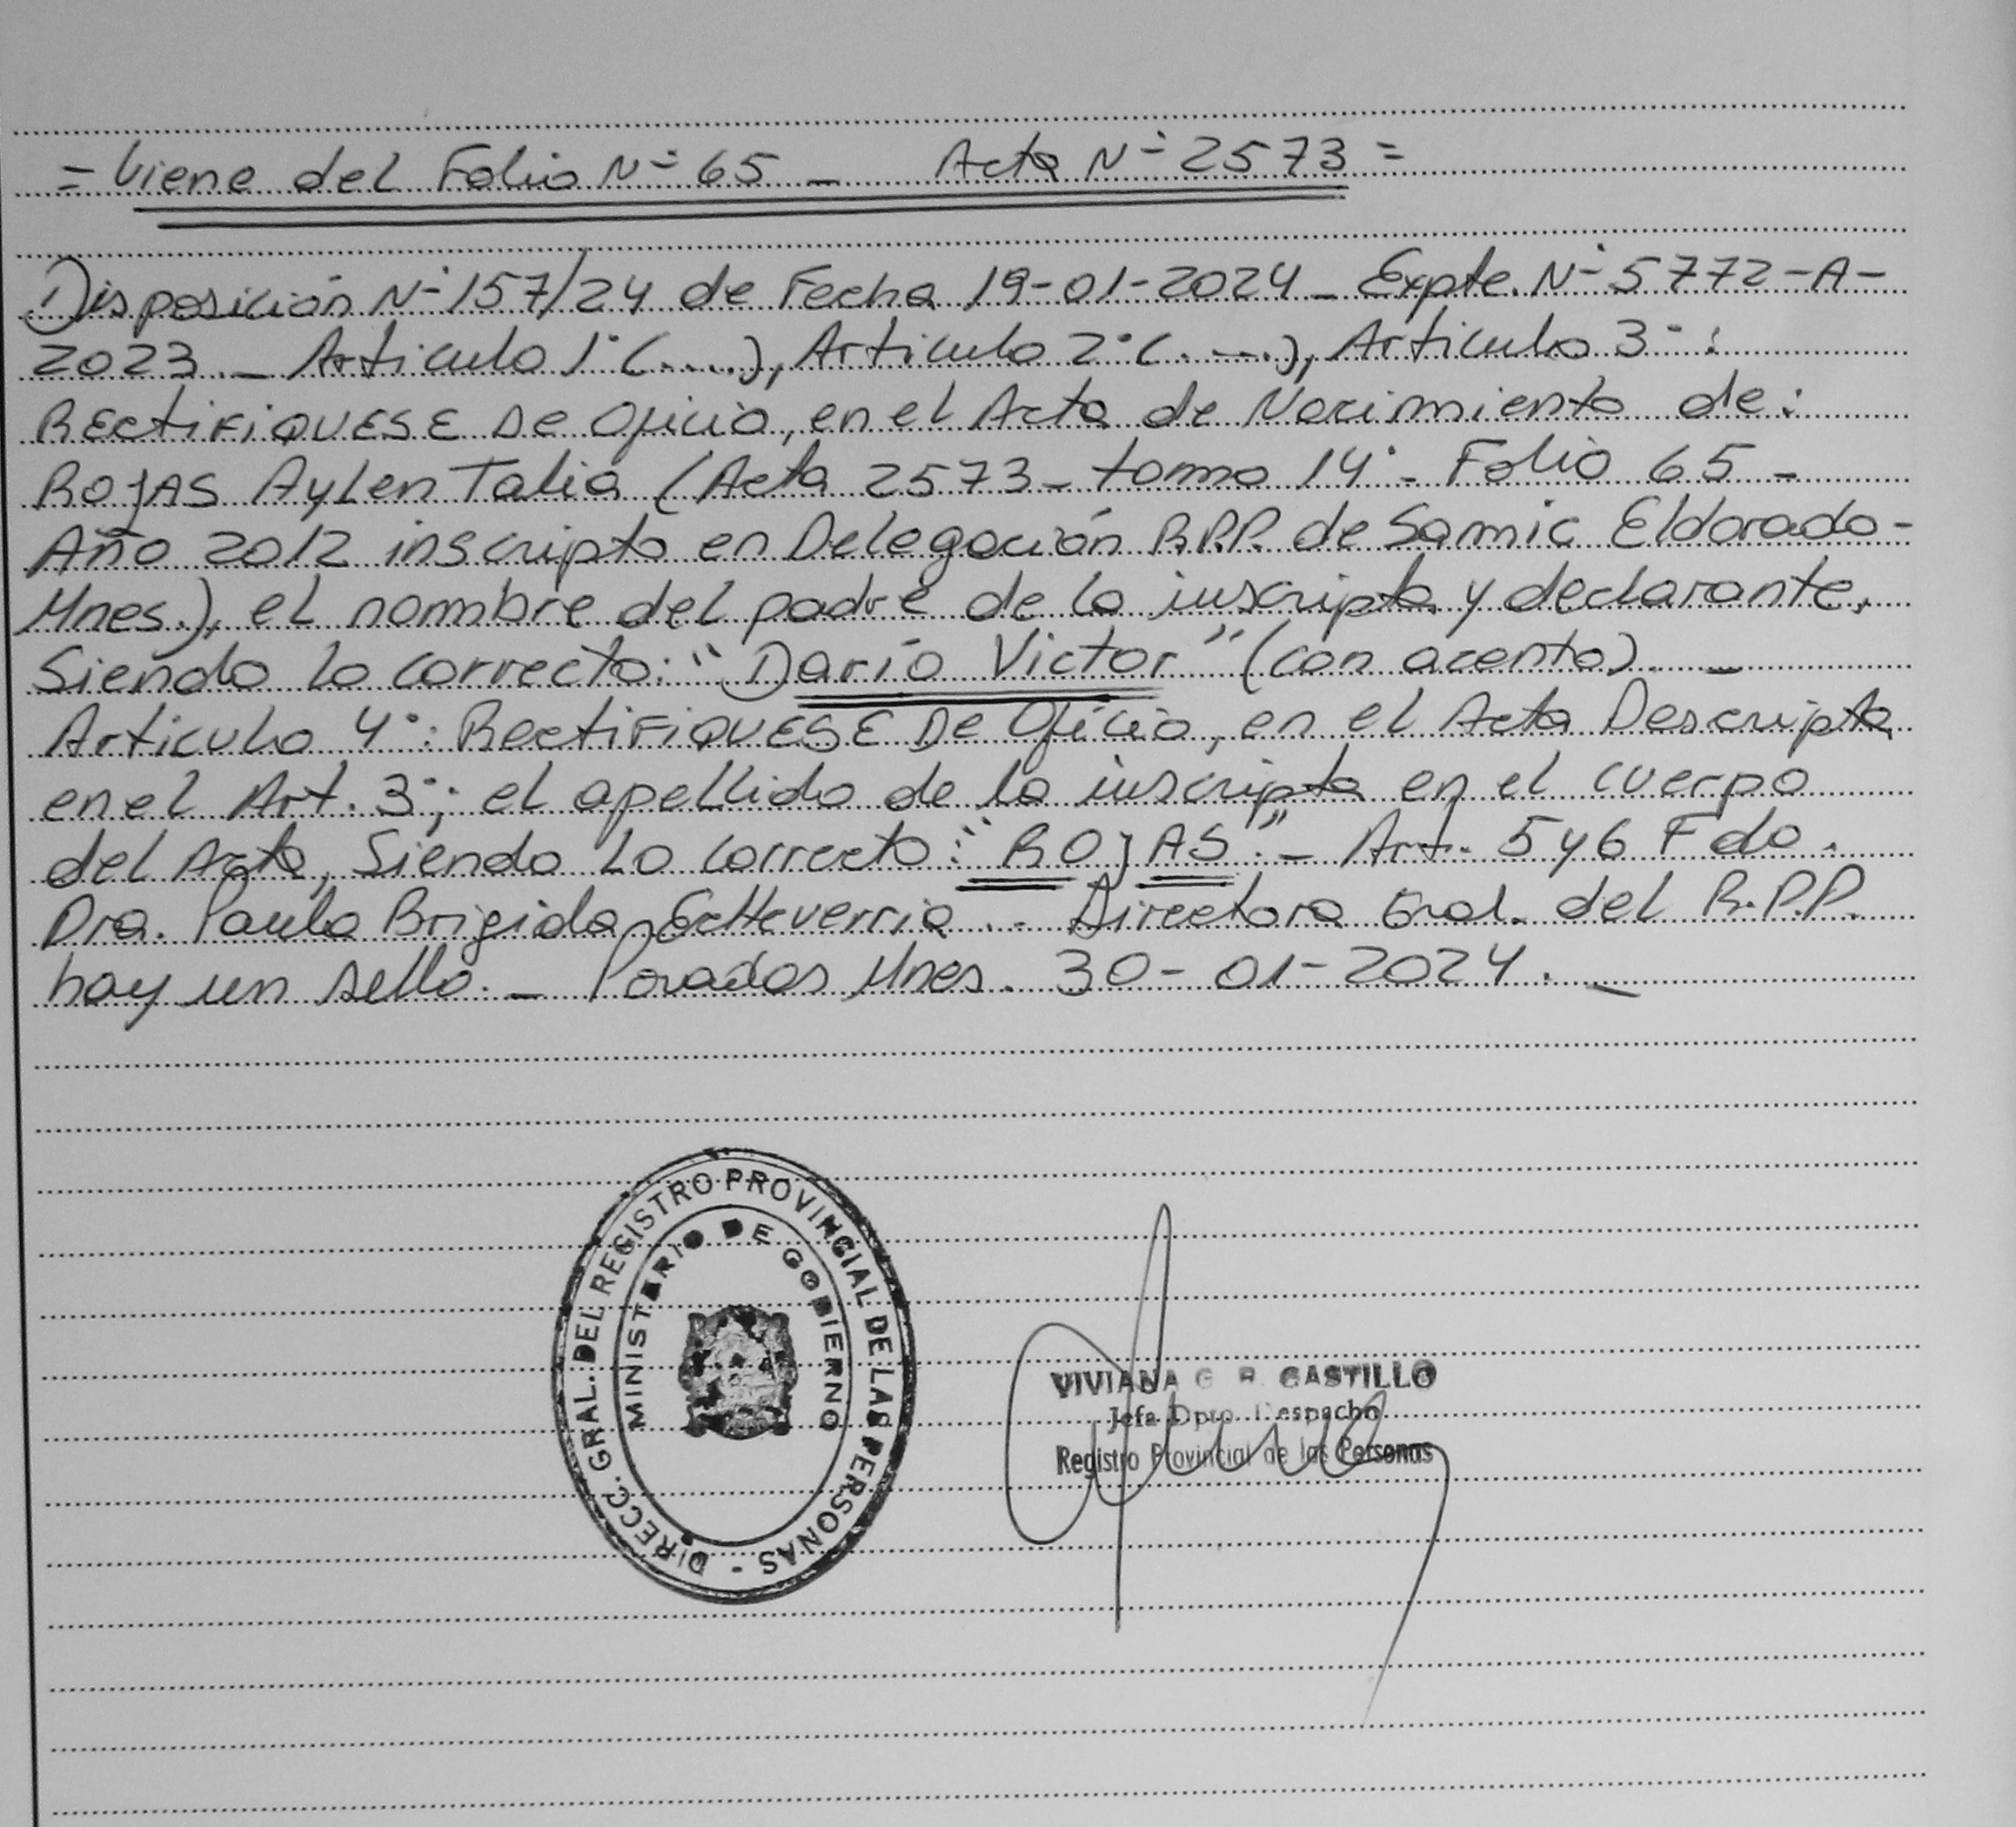 = Viene del Folio Nº 65 _ Acta Nº 2573 =
Disposición Nº 157/24 de Fecha 19-01-2024 _ Expte. Nº 5772-A-
2023 _ Articulo 1° (.....), Articulo 2° (.....), Articulo 3°:
RECTIFIQUESE DE Oficio, en el Acta de Nacimiento de:
ROJAS Aylen Talia (Acta 2573 _ tomo 14° - Folio 65 -
Año 2012 inscripto en Delegación R.P.P. de Samic Eldorado-
Mnes.), el nombre del padre de la inscripta y declarante,
Siendo lo correcto: "Darío Victor" (con acento) _
Articulo 4°: RECTIFIQUESE DE Oficio, en el Acta Descripta
en el Art. 3°; el apellido de la inscripta en el cuerpo
del Acta, Siendo Lo correcto: "ROJAS". _ Art. 5 y 6 Fdo.
Dra. Paula Brigida Echeverria .- Directora Gral. del R.P.P.
hay un sello. _ Posadas Mnes. 30-01-2024. _
DIRECC. GRAL. DEL REGISTRO PROVINCIAL DE LAS PERSONAS -
MINISTERIO DE GOBIERNO
VIVIANA G. R. CASTILLO
Jefa Dpto. Despacho
Registro Provincial de las Personas